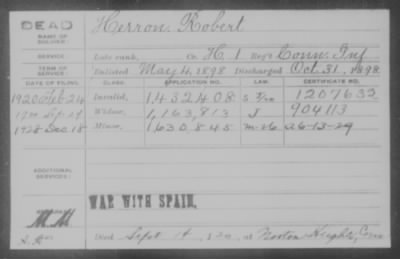 DEAD Herron Robert
NAME OF SOLDIER:
SERVICE: Late rank, Co. H 1 Reg't Conn. Inf
TERM OF SERVICE: Enlisted May 4, 1898 Discharged Oct. 31, 1898
DATE OF FILING. CLASS. APPLICATION NO. LAW. CERTIFICATE NO.
1920 Feb-24 Invalid, 1432408 1207632
Sep-29 Widow, 1,163,813 J 904113
1928-Dec.18 Minor, 1630,845 M-26 A6-13-29
ADDITIONAL SERVICES:
WAR WITH SPAIN.
M.M
Died Sept 14, 1920, at Noroton Heights, Conn